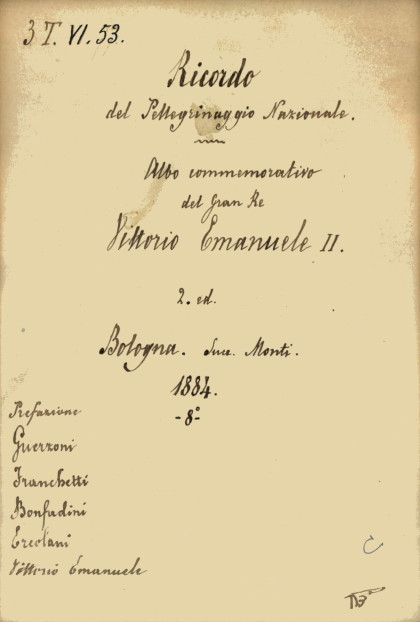 3 T. VI. 53.
Ricordo
del Pellegrinaggio Nazionale.
Albo commemorativo
del Gran Re
Vittorio Emanuele II.
2. ed.
Bologna. Succ. Monti.
1884.
-8º-
Prefazione
Guerzoni
Franchetti
Bonfadini
Ercolani
Vittorio Emanuele
C